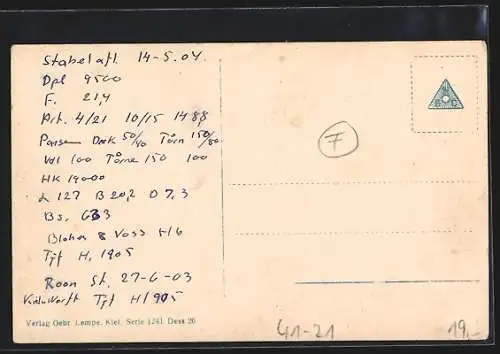 Stapellauf 14-5.04
Dpl 9500
F. 21,4
Art. 4/21 10/15 14 88
Panzer Deck 50/40 Türm 150/80
Vdl 100 Türme 150 100
HK 19000
L 127 B 20,2 D 7,3
Bs. 633
Blohm & Voss H/6
Tjf H. 1905
Roon St. 27-6-03
Kielwerft Tjf H/905
F
N
B C
Verlag Gebr. Lempe, Kiel. Serie 1241 Dess 26
41-21
19,-